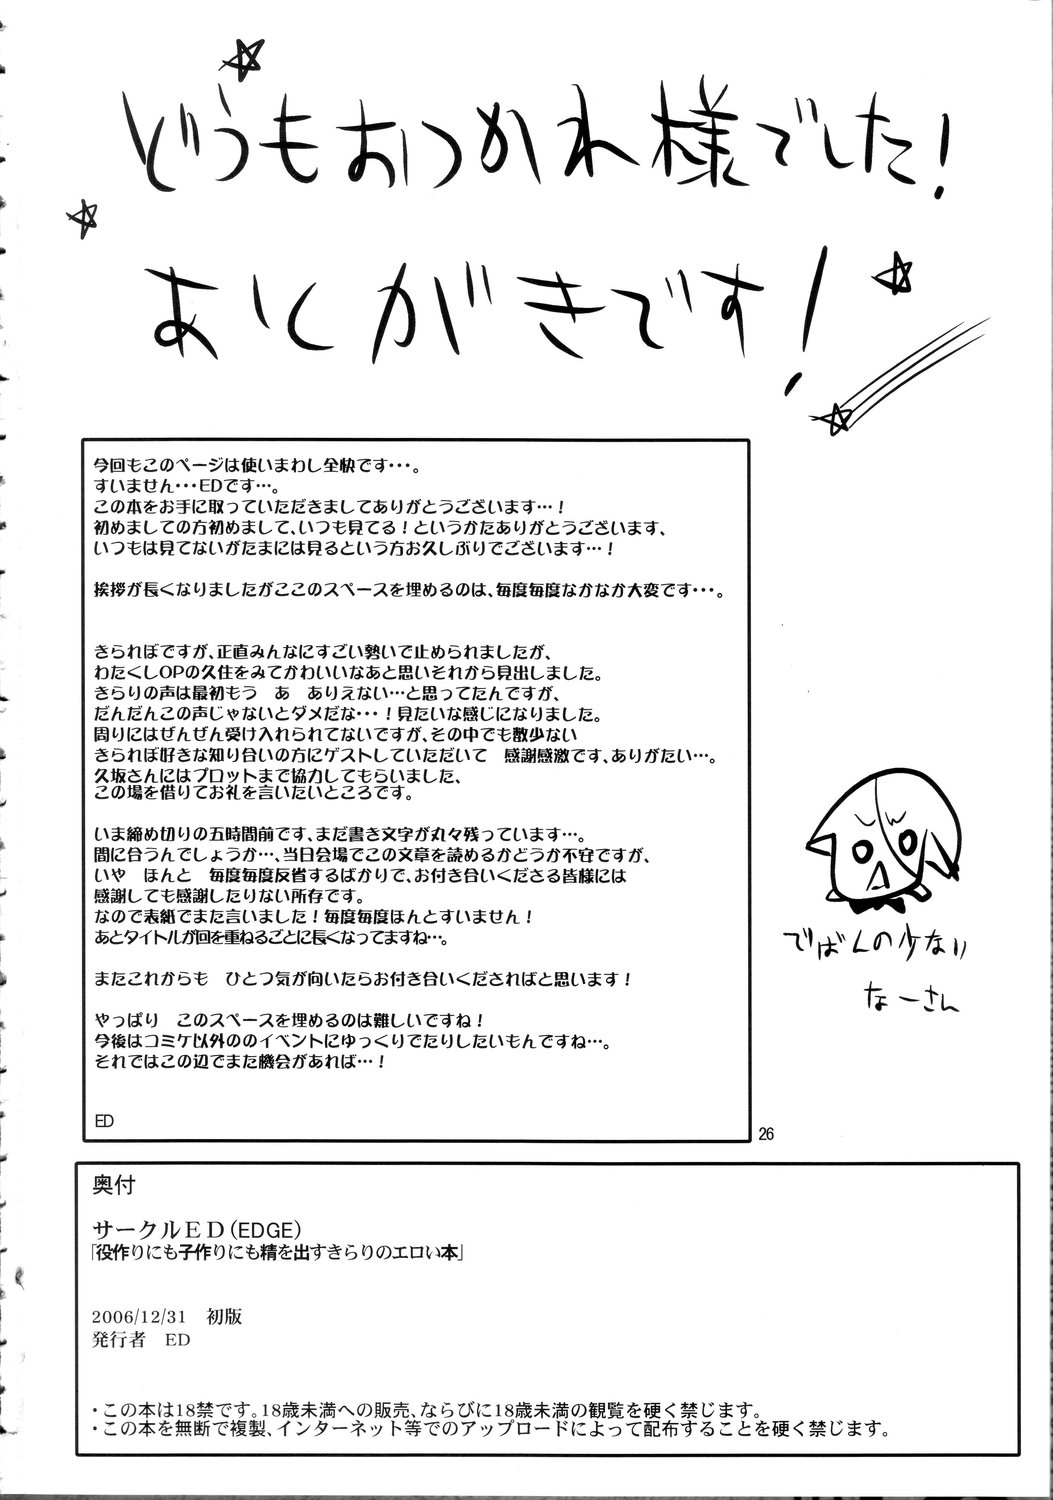 どうもおつかれ様でした!
あとがきです!
今回もこのページは使いまわし全快です・・・。
すいません・・・EDです…。
この本をお手に取っていただきましてありがとうございます…!
初めましての方初めまして、いつも見てる!というかたありがとうございます、
いつもは見てないがたまには見るという方お久しぶりでございます…!
挨拶が長くなりましたがここのスペースを埋めるのは、毎度毎度なかなか大変です・・・。
きらればですが、正直みんなにすごい勢いで止められましたが、
わたくしOPの久住をみてかわいいなあと思いそれから見出しました。
きらりの声は最初もう　あ　ありえない…と思ってたんですが、
だんだんこの声じゃないとダメだな・・・!見たいな感じになりました。
周りにはぜんぜん受け入れられてないですが、その中でも数少ない
きられぼ好きな知り合いの方にゲストしていただいて　感謝感激です、ありがたい…。
久坂さんにはプロットまで協力してもらいました、
この場を借りてお礼を言いたいところです。
いま締め切りの五時間前です、まだ書き文字が丸々残っています…。
間に合うんでしょうか…、当日会場でこの文章を読めるかどうか不安ですが、
いや　ほんと　毎度毎度反省するばかりで、お付き合いくださる皆様には
感謝しても感謝したりない所存です。
なので表紙でまた言いました!毎度毎度ほんとすいません!
あとタイトルが回を重ねるごとに長くなってますね…。
またこれからも　ひとつ気が向いたらお付き合いくださればと思います!
やっぱり　このスペースを埋めるのは難しいですね!
今後はコミケ以外ののイベントにゆっくりでたりしたいもんですね…。
それではこの辺でまた機会があれば…!
ED
でばんの少ない
なーさん
26
奥付
サークルED(EDGE)
「役作りにも子作りにも精を出すきらりのエロい本」
2006/12/31　初版
発行者　ED
・この本は18禁です。18歳未満への販売、ならびに18歳未満の観覧を硬く禁じます。
・この本を無断で複製、インターネット等でのアップロードによって配布することを硬く禁じます。